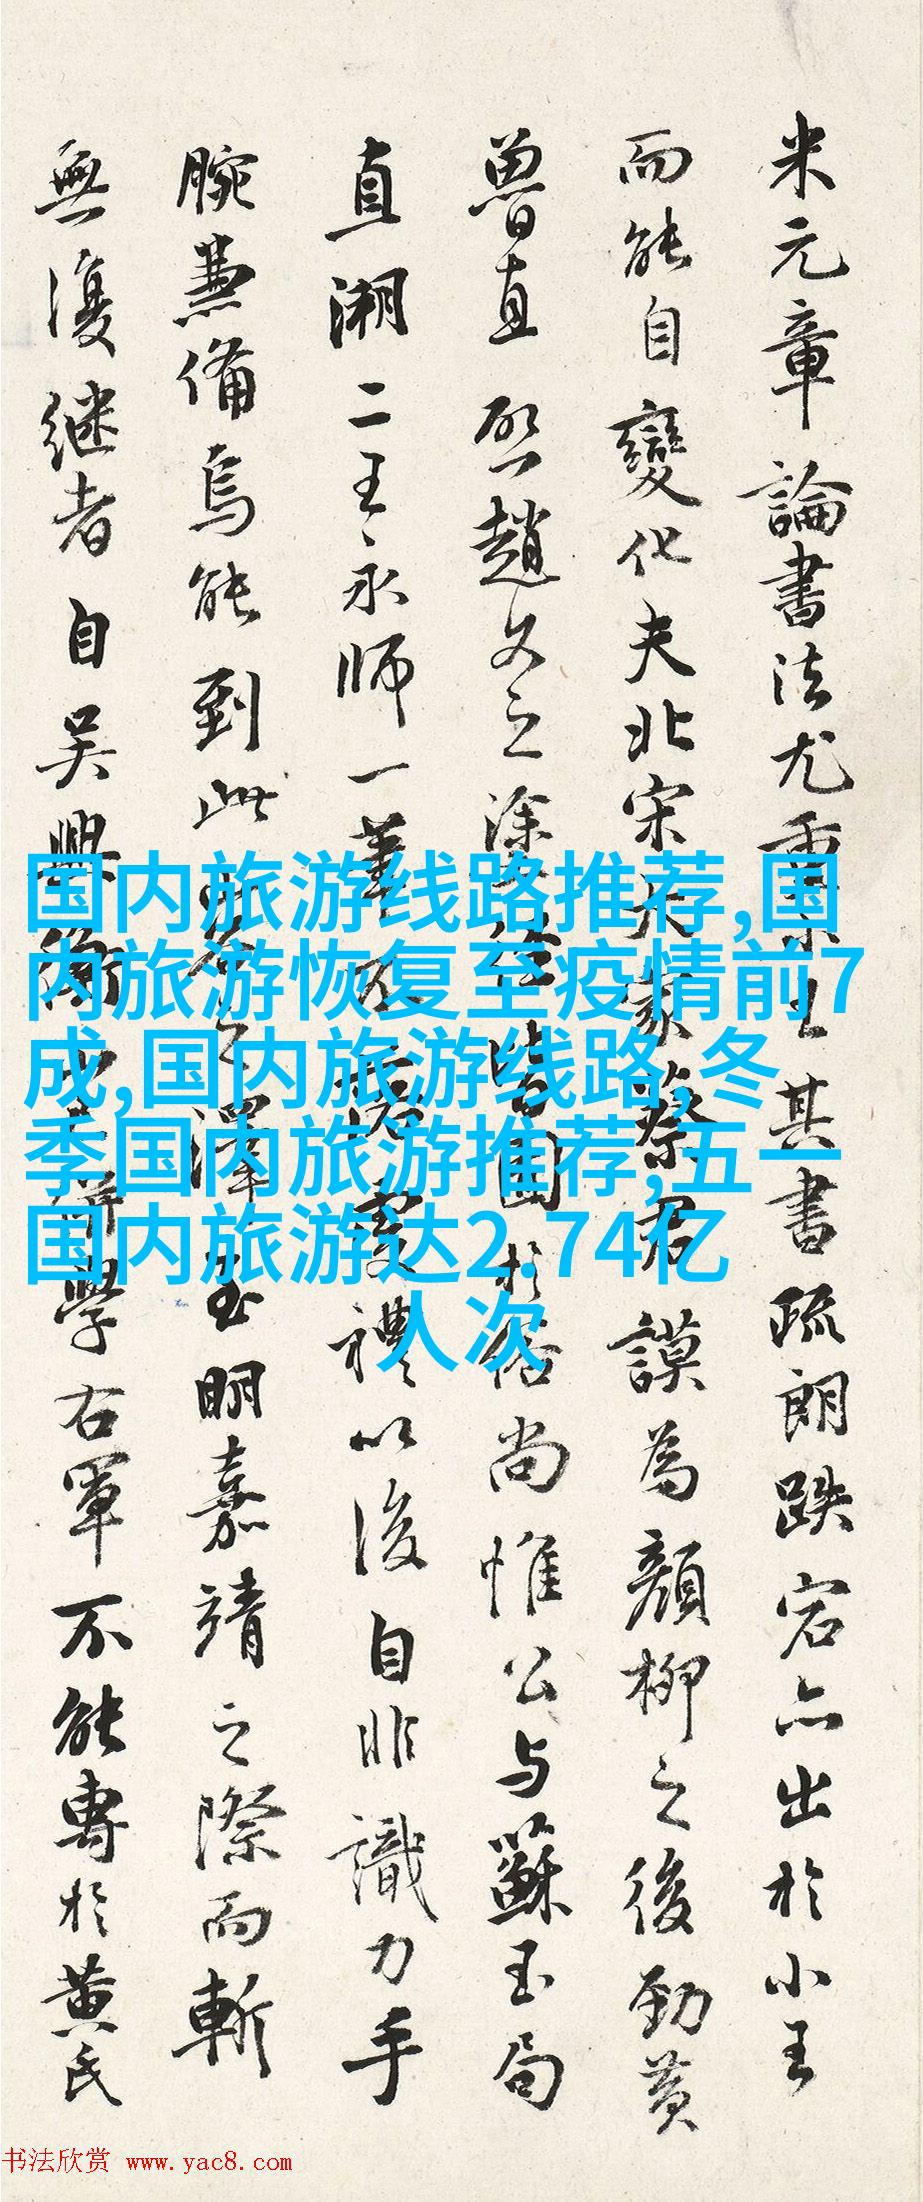 米元章論書法尤重小王其書疏朗跌宕亦出於小王
而能自變化夫北宋大家蔡君謨為顏柳之後勁黃
魯直
趙文之
皆囿於俗尚惟公与蘇玉局
直溯二王永師一
以後自非識力手
腕兼備烏能到此
明嘉靖之際而斬
無復继者自吴興
學右軍不能專於黄氏
国内旅游线路推荐,国
内旅游恢复至疫情前7
成,国内旅游线路,冬
季国内旅游推荐,五一
国内旅游达2.74亿
人次
书法欣赏 www.yac8.com